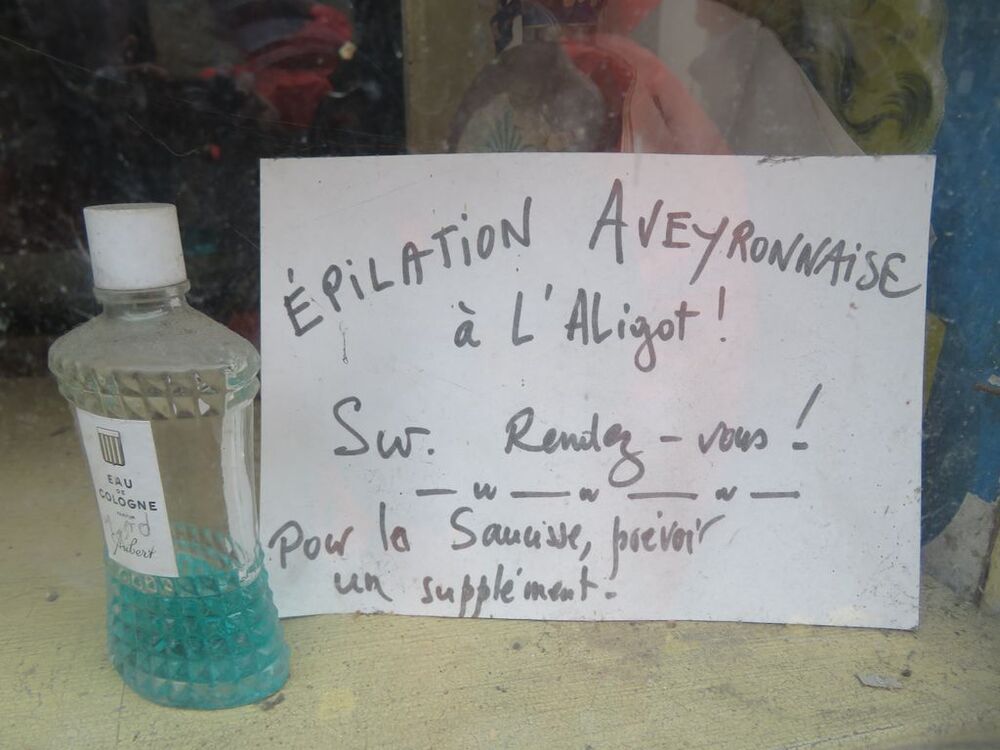 ÉPILATION AVEYRONNAISE
à L'ALigot !
Sur. Rendez-vous !
Pour la Saucisse, prévoir
un supplément.
EAU
DE
COLOGNE
Aubert